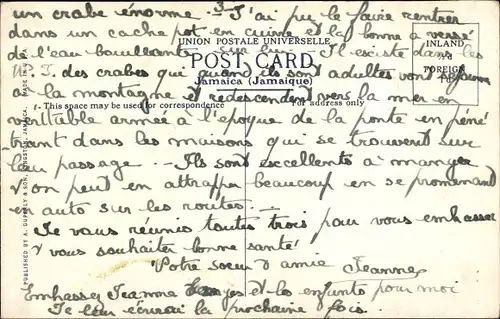 un crabe énorme - 3 - J'ai pu le faire rentrer
dans un cache pot en cuivre et la bonne a versé
de l'eau bouillante sur lui - Il existe dans les
UNION POSTALE UNIVERSELLE.
POST CARD
Jamaica (Jamaique)
INLAND
FOREIGN
1d.
I. des crabes qui quand ils sont adultes vont
This space may be used for correspondence
For address only
la montagne & redescendent vers la mer en
veritable armée à l'époque de la ponte en péné
trant dans les maisons qui se trouvent sur
leur passage - Ils sont excellents à manger
& on peut en attrapper beaucoup en se promenant
en auto sur les routes -
Je vous réunis toutes trois pour vous embrasser
& vous souhaiter bonne santé
Votre soeur & amie Jeanne
Embassez Jeanne et les enfants pour moi
Je leur écrirai la prochaine fois.
PUBLISHED BY A. DUPERLY & SON, KINGSTON, JAMAICA.